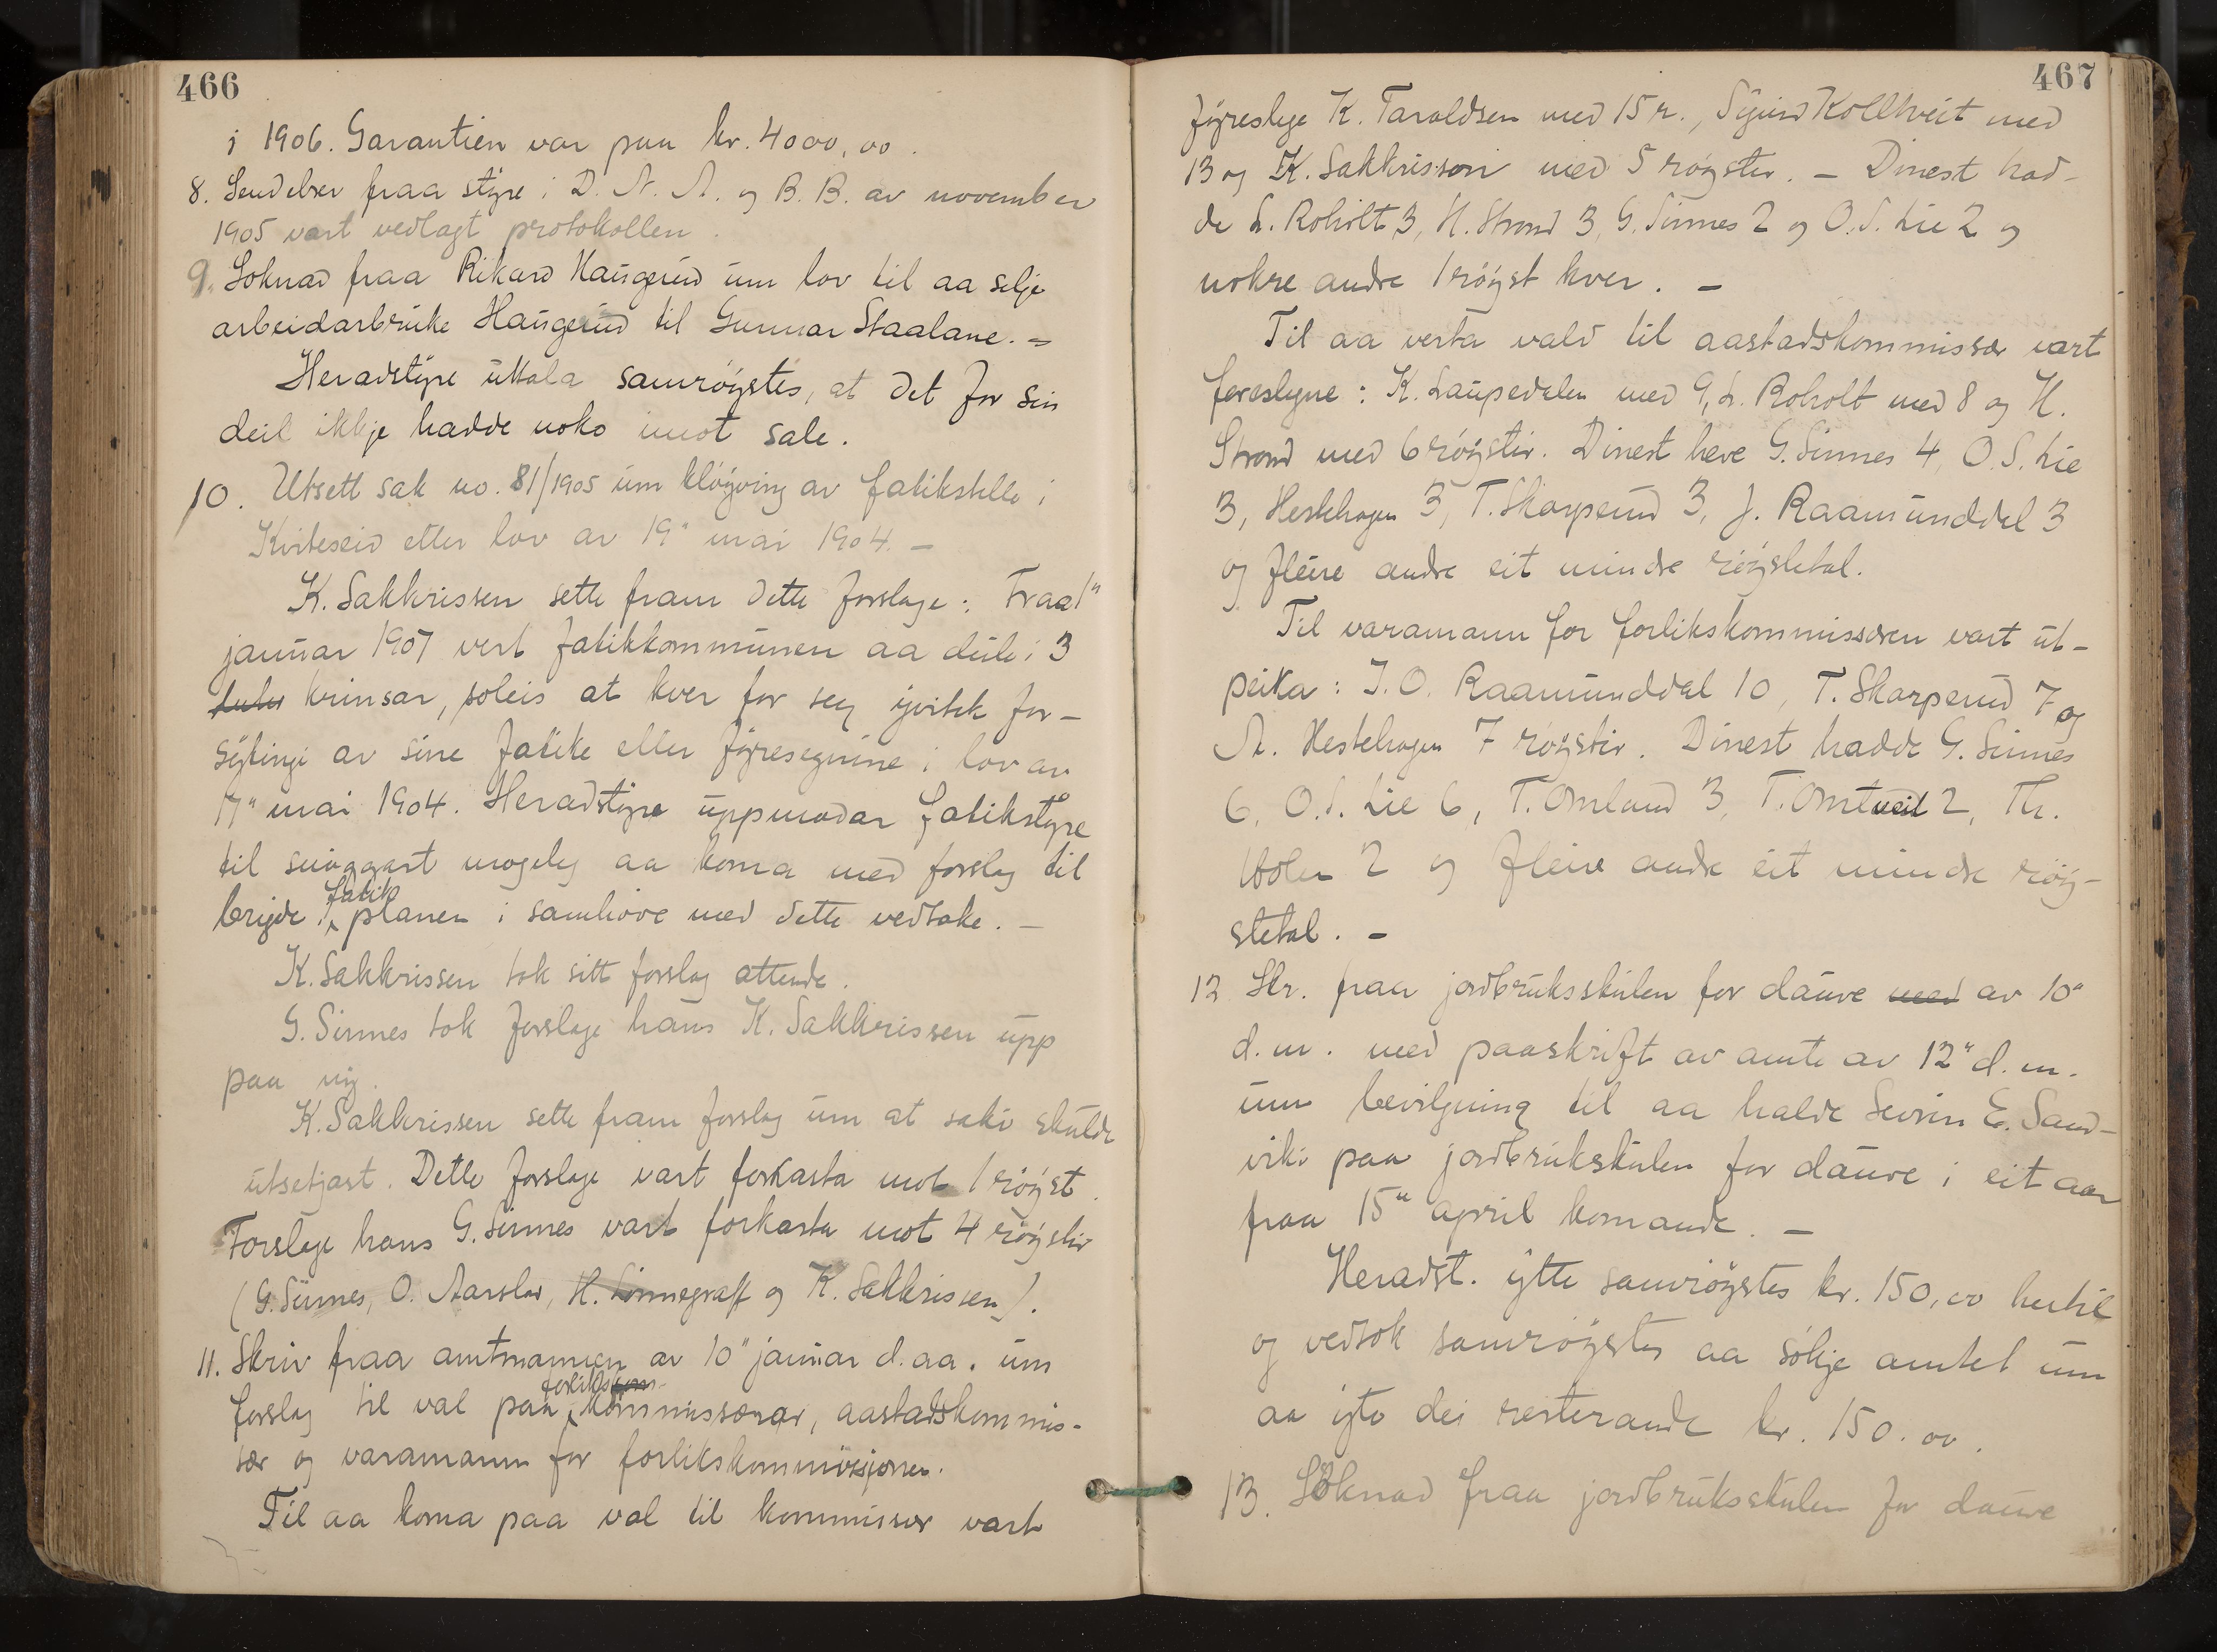 466
i 1906. Garantien var paa kr. 4000,00.
8. Sendelser fraa styre i D. N. A. og B. B. av november
1905 vart vedlagt protokollen.
9. Soknad fraa Rikard Haugerud um lov til aa selje
arbeidarbruke Haugerud til Gunnar Staalane. =
Heradstyre uttala samröystes, at det for sin
deil ikkje hadde noko imot sale.
10. Utsett sak no. 81/1905 um klöyving av fatikstelle i
Kviteseid etter lov av 19" mai 1904. –
K. Sakkrissen sette fram dette forslage: Fraa 1"
januar 1907 vert fatikkommunen aa deile i 3
krinsar, soleis at kver for seg yvitek for-
syting av sine fatike etter fyresegnine i lov av
19" mai 1904. Heradstyre uppmodar fatikstyre
til snöggast mogeleg aa koma med forslag til
brigde i fatikplanen i samhöve med dette vedtake. –
K. Sakkrissen tok sitt forslag attende.
G. Sinnes tok forslage hans K. Sakkrissen upp
paa ny.
K. Sakkrissen sette fram forslag um at saki skulde
utsetjast. Dette forslage vart forkasta mot 1 röyst.
Forslage hans G. Sinnes vart forkasta mot 4 röyster
(G. Sinnes, O. Aarslad, H. Lönnegraff og K. Sakkrissen).
11. Skriv fraa amtmannen av 10" januar d. aa. um
forslag til val paa forlikskommissærar, aastadskommis-
sær og varamann for forlikskommissjonen.
Til aa koma paa val til kommissær vart
467
fyreslege K. Taraldsen med 15 r., Sigurd Kolltveit med
13 og K. Sakkrisson med 5 röyster. – Dinest had-
de L. Roholt 3, H. Strond 3, G. Sinnes 2 og O. S. Lie 2 og
nokre andre 1 röyst kver. –
Til aa verta vald til aastadskommissær vart
foreslegne: K. Laupedalen med 9, L. Roholt med 8 og H.
Strond med 6 röyster. Dinest heve G. Sinnes 4, O. S. Lie
3, Hestehagen 3, T. Skarperud 3, J. Raamunddal 3
og fleire andre eit mindre röystetal.
Til varamann for forlikskommissæren vart ut-
peika: J. O. Raamunddal 10, T. Skarperud 7 og
A. Hestehagen 7 röyster. Dinest hadde G. Sinnes
6, O. S. Lie 6, T. Omland 3, T. Omtveit 2, Th.
2 og fleire andre eit mindre röy-
stetal. –
12 Skr. fraa jordbruksskulen for dauve med av 10"
d. m. med paaskrift av amte av 12" d. m.
um bevilgning til aa halde Sevrin E. Sand-
viki paa jordbrukskulen for dauve i eit aar
fraa 15" april komande. –
Heradst. ytte samröystes kr. 150,00 hertil
og vedtok samröystes aa sökje amtet um
aa yte dei resterande kr. 150.00.
13. Söknad fraa jordbruksskulen for dauve